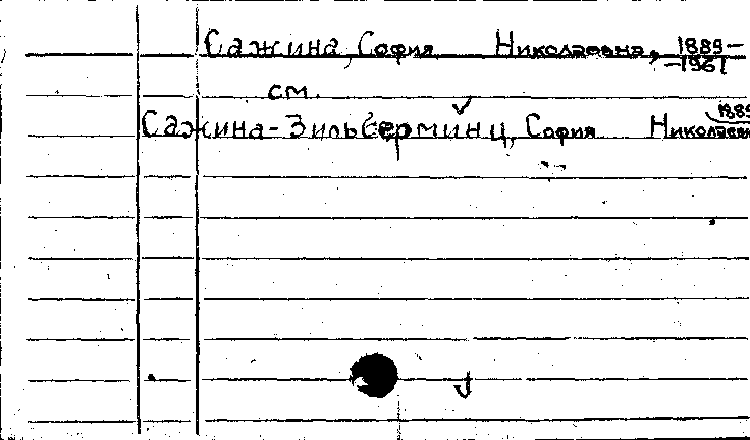 Сажина, София Николаевна, 1889–
–1961
см.
Сажина-Зильберминц, София Николаевн
1889